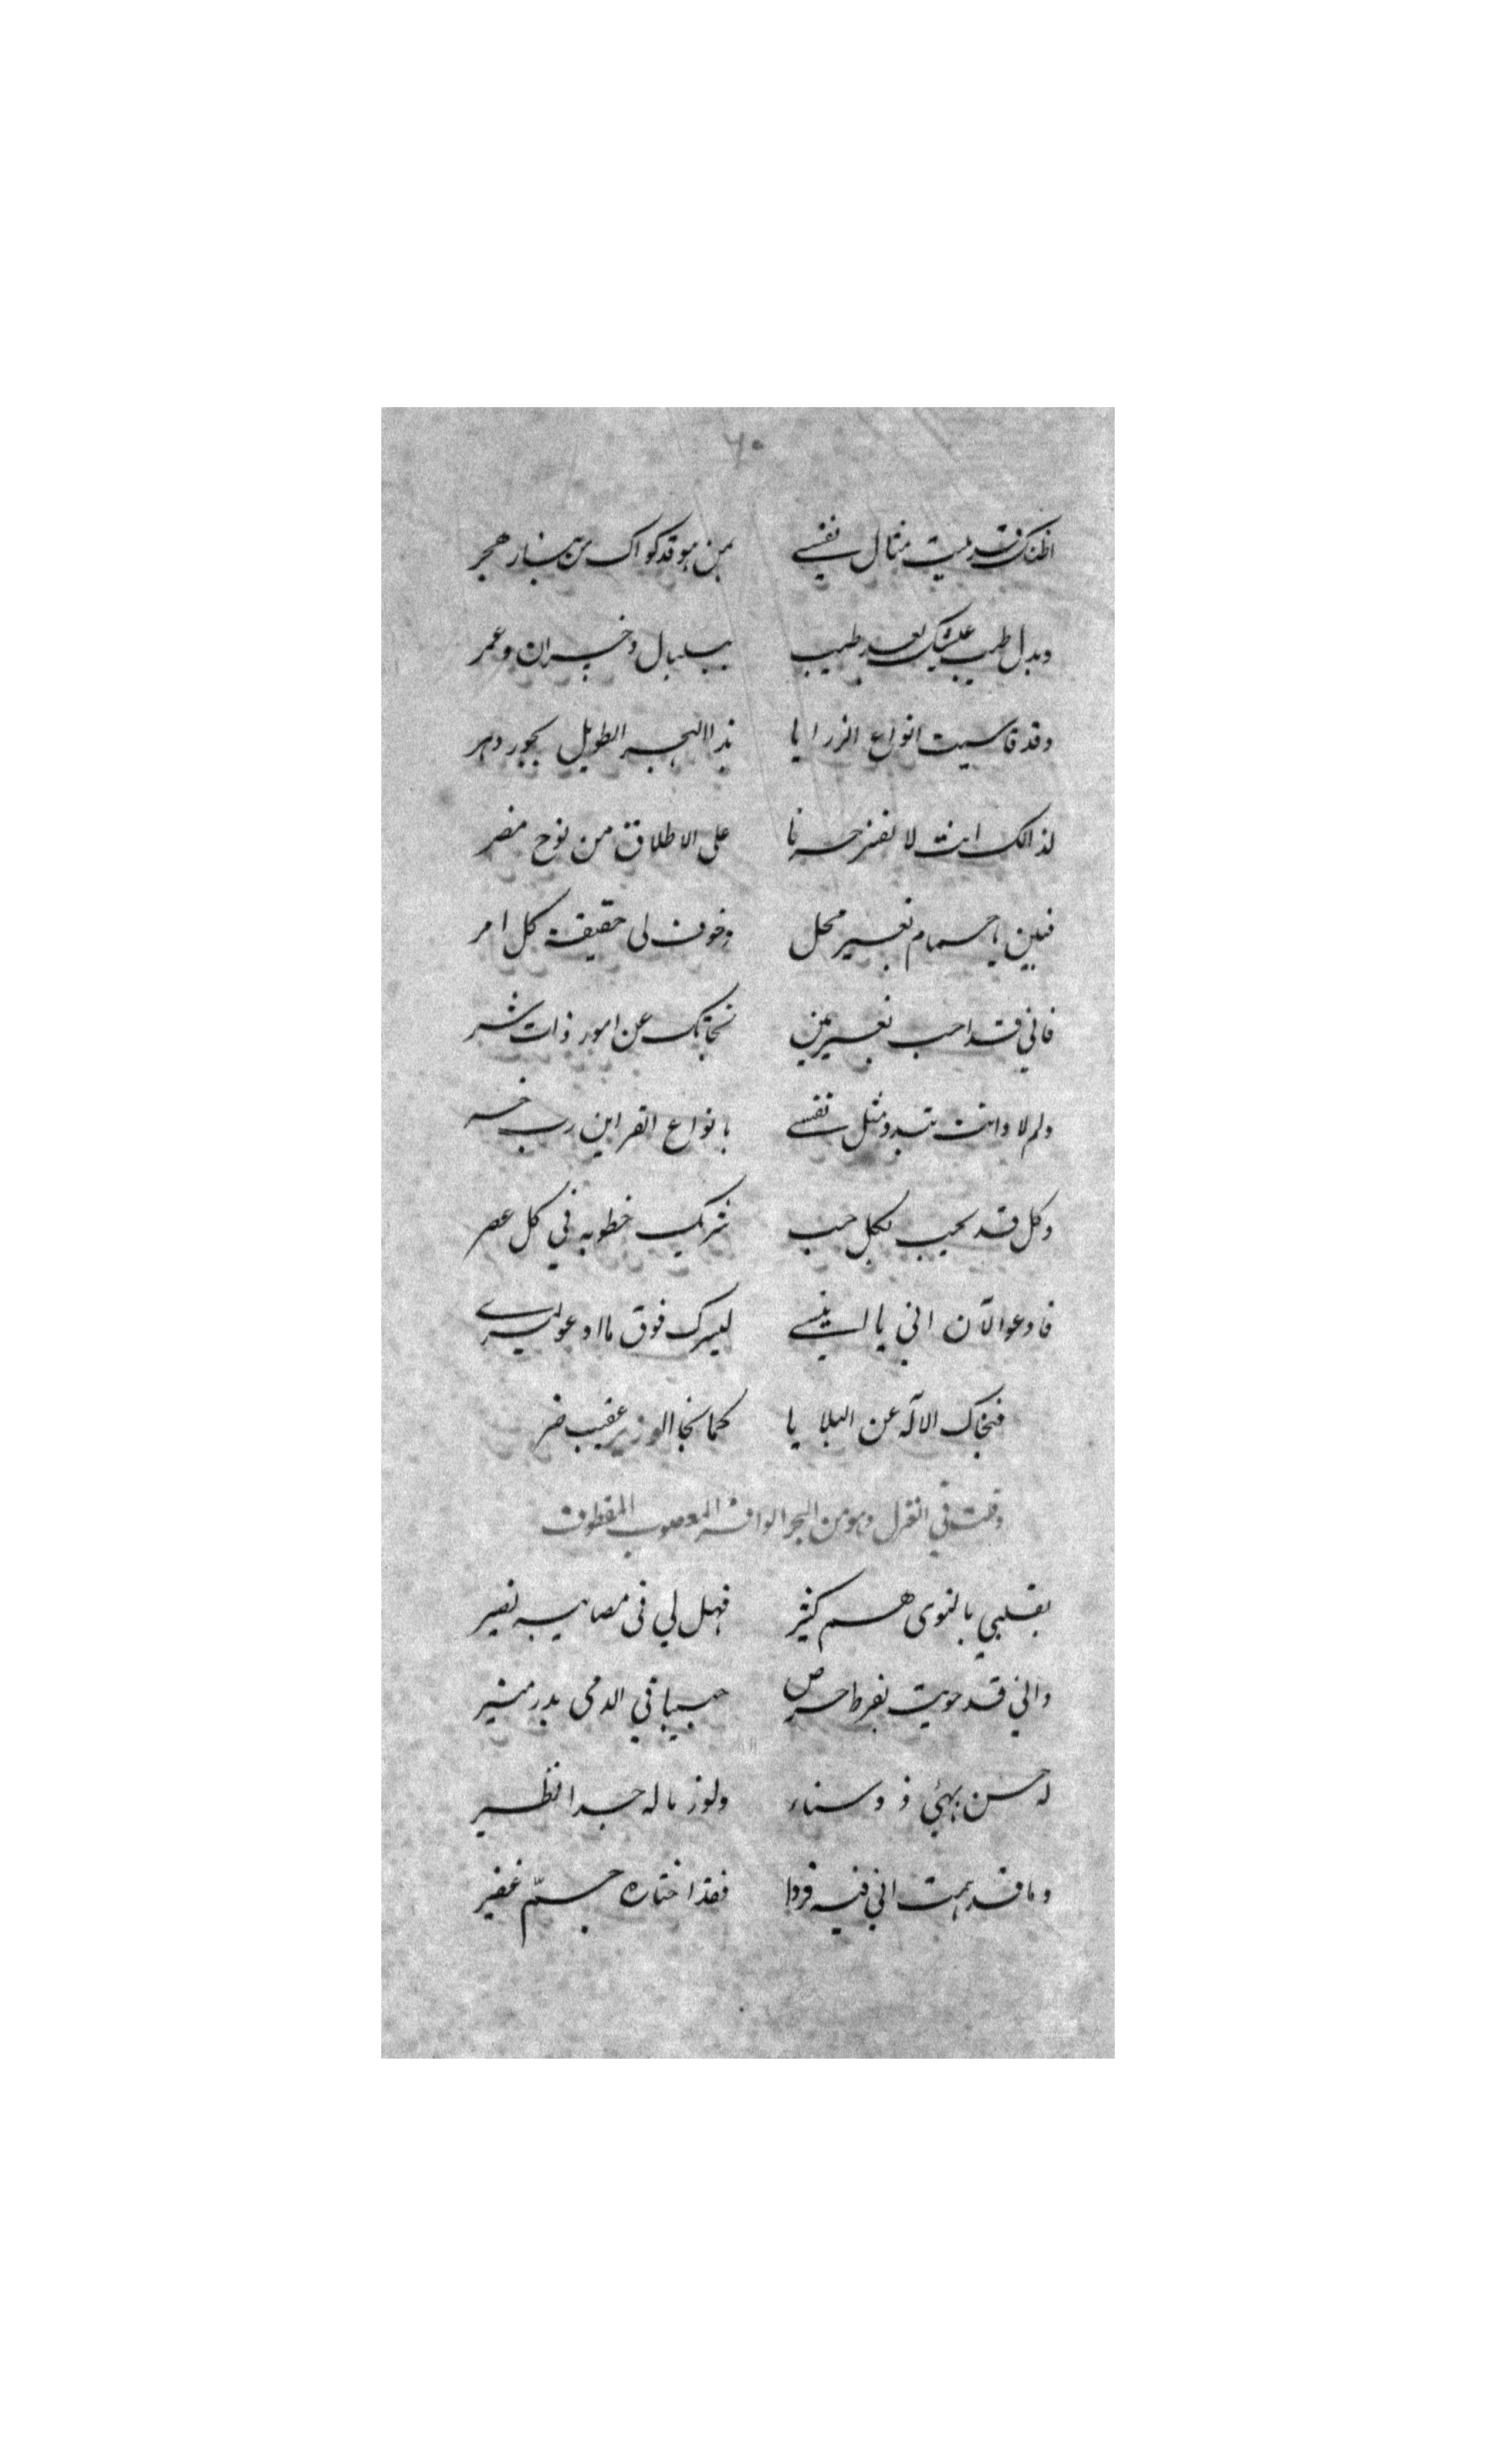 ٦٠
اظنك قد هيت مثال نفسي بمن هو قد كواك من بنار هجر
وبدل طيب عيشك بعد طيب ببلبال وخسران وعمر
وقد قاسيت انواع الرزايا بذا الهجر الطويل بجور دهر
لذالك انت لا تفتر حزنا على الاطلاق من نوح مضر
فبين يا حمام بغير محل وخوف لى حقيقة كل امر
فاني قد احب بغير مين نجاتك عن امور ذات شر
ولم لا وانت تبدو مثل نفسي بانواع القراين رب خسر
وكل قد يحب بكل حب شريك خطوبه في كل عصر
فادعو الآن اني يا انيسي ليسرك فوق ما ادعو ليسري
فنجاك الاله عن البلايا كما نجا الوزير عقيب ضر
وقلت في الغزل وهو من البحر الوافر المعصوب المقطوف
بقلبي بالنوى هم كثير فهل لي فى مصايبه نصير
واني قد حويت بفرط حرص حبيبا في الدمى بدر منير
له حسن بهيّ ذو سناء ولوز ما له جدا نظير
وما قد همت اني فيه فردا فقد اختاره جمّ غفير